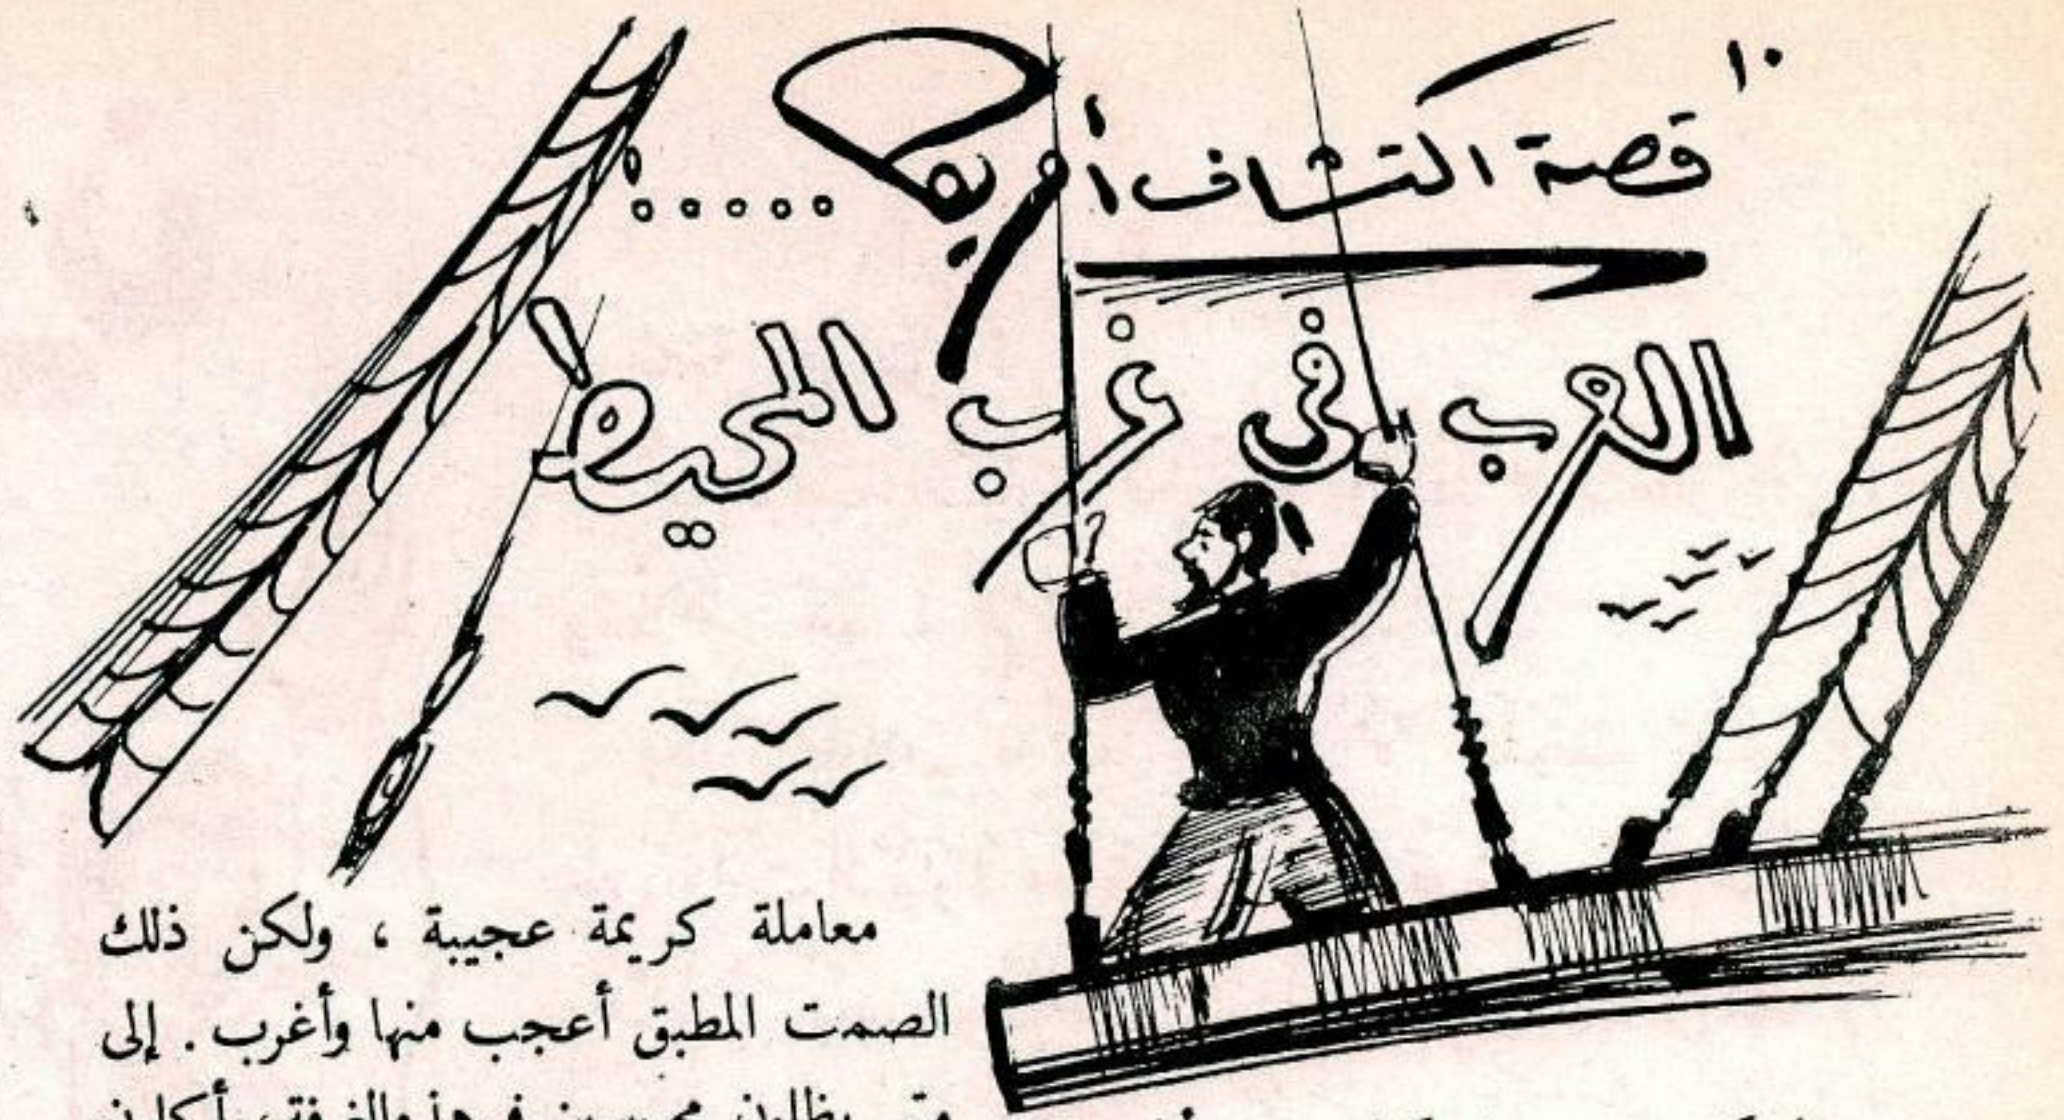 ١٠
قصة اكتشاف أمريكا.....
العرب فى غرب المحيط
معاملة كريمة عجيبة ، ولكن ذلك
الصمت المطبق أعجب منها وأغرب . إلى